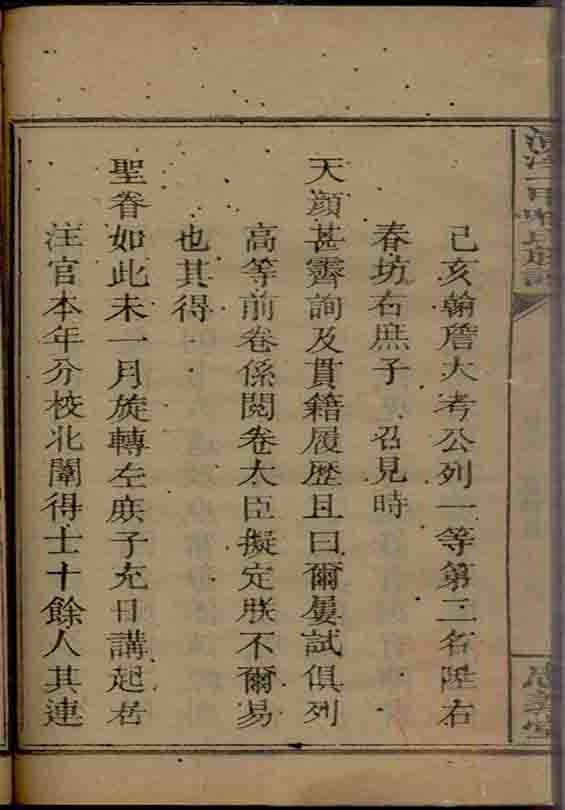 氏族譜
堂
己亥翰詹大考公列一等第三名陞右
春坊右庶子 召見時
天顔甚霽詢及貫籍履歷且曰爾屢試俱列
高等前卷係閱卷大臣擬定朕不爾易
也其得
聖眷如此未一月旋轉左庶子充日講起居
注官本年分校北闈得士十餘人其連